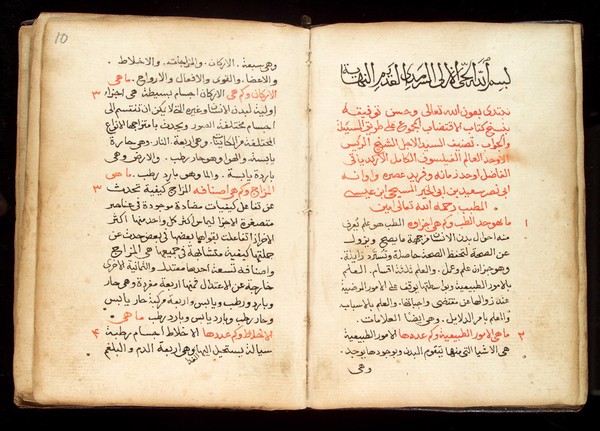 بسم الله الحي الازلي السرمدي القديم النهاية
نبتدي بعون الله تعالى وحسن توفيقه
بنسخ كتاب الاقتضاب المجموع على طريق المسئلة
والجواب. تصنيف السيد الاجل الشيخ الرئيس
الاوحد العالم الفيلسوف الكامل الاريب التقي
الفاضل اوحد زمانه وفريد عصره واوانه
ابي نصر سعيد بن ابي الخير المسيحي ابن عيسى
المطبب رحمه الله تعالى امين
ما هو حد الطب وكم هي اجزاوه الطب هو علم يعرف ١
منه احوال بدن الانسان من جهة ما يصح ويزول
عن الصحة لتحفظ الصحة حاصلة وتسترد زايلة.
وهو جزان علم وعمل. والعلم ثلاثة اقسام. العلم
بالامور الطبيعية
عند زوالها عن مقتضى واجباتها. والعلم بالاسباب
والعلم بامر الدلايل. وهي ايضا العلامات.
ما هي الامور الطبيعية وكم عددها الامور الطبيعية ٢
هي الاشيا التي منها يتقوم البدن وبوجودها يوجد.
وهي
10
وهي سبعة. الاركان. والمزاجات. والاخلاط.
والاعضا. والقوى والافعال والارواح. ما هي
الاركان وكم هي الاركان اجسام بسيطة هي اجزا ٣
اولية لبدن الانسان وغيره التي لا يمكن ان تنقسم الى
اجسام مختلفة الصور ويحدث بامتزاجها الانواع
المختلفة من الكاينات. وهي اربعة. النار. وهي حارة
يابسة. والهوا وهو حار رطب. والارض وهي
باردة يابسة. والما وهو بارد رطب. ما هو
المزاج وكم هي اصنافه المزاج كيفية تحدث ٣
من تفاعل كيفيات متضادة موجودة في عناصر
متصغرة الاجزا ليماس اكثر كل واحد منها اكثر
الاخر اذا تفاعلت بقواها بعضها في بعض حدث عن
جملتها كيفية متشابهة في جميعها هي المزاج
واصنافه تسعة احدها معتدل. والثمانية الاخرى
خارجة عن الاعتدال منها اربعة مفردة وهي حار
وبارد ورطب ويابس واربعة مركبة حار يابس
وحار رطب وبارد يابس وبارد رطب ما هي
الاخلاط وكم عددها الاخلاط اجسام رطبة ۴
سيالة يستحيل اليها الغذا وهي اربعة الدم والبلغم